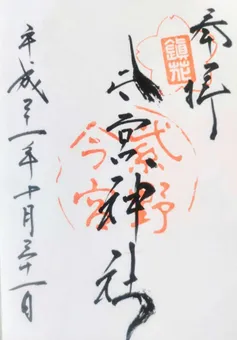 奉拝
鎮花
今宮神社
紫野
今宮
平成二十一年十月三十一日